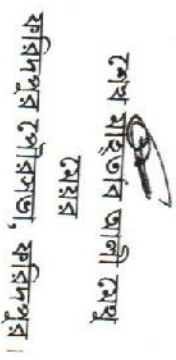 শেখ মাহ্তাব আলী মেথু
মেয়র
ফরিদপুর পৌরসভা, ফরিদপুর।